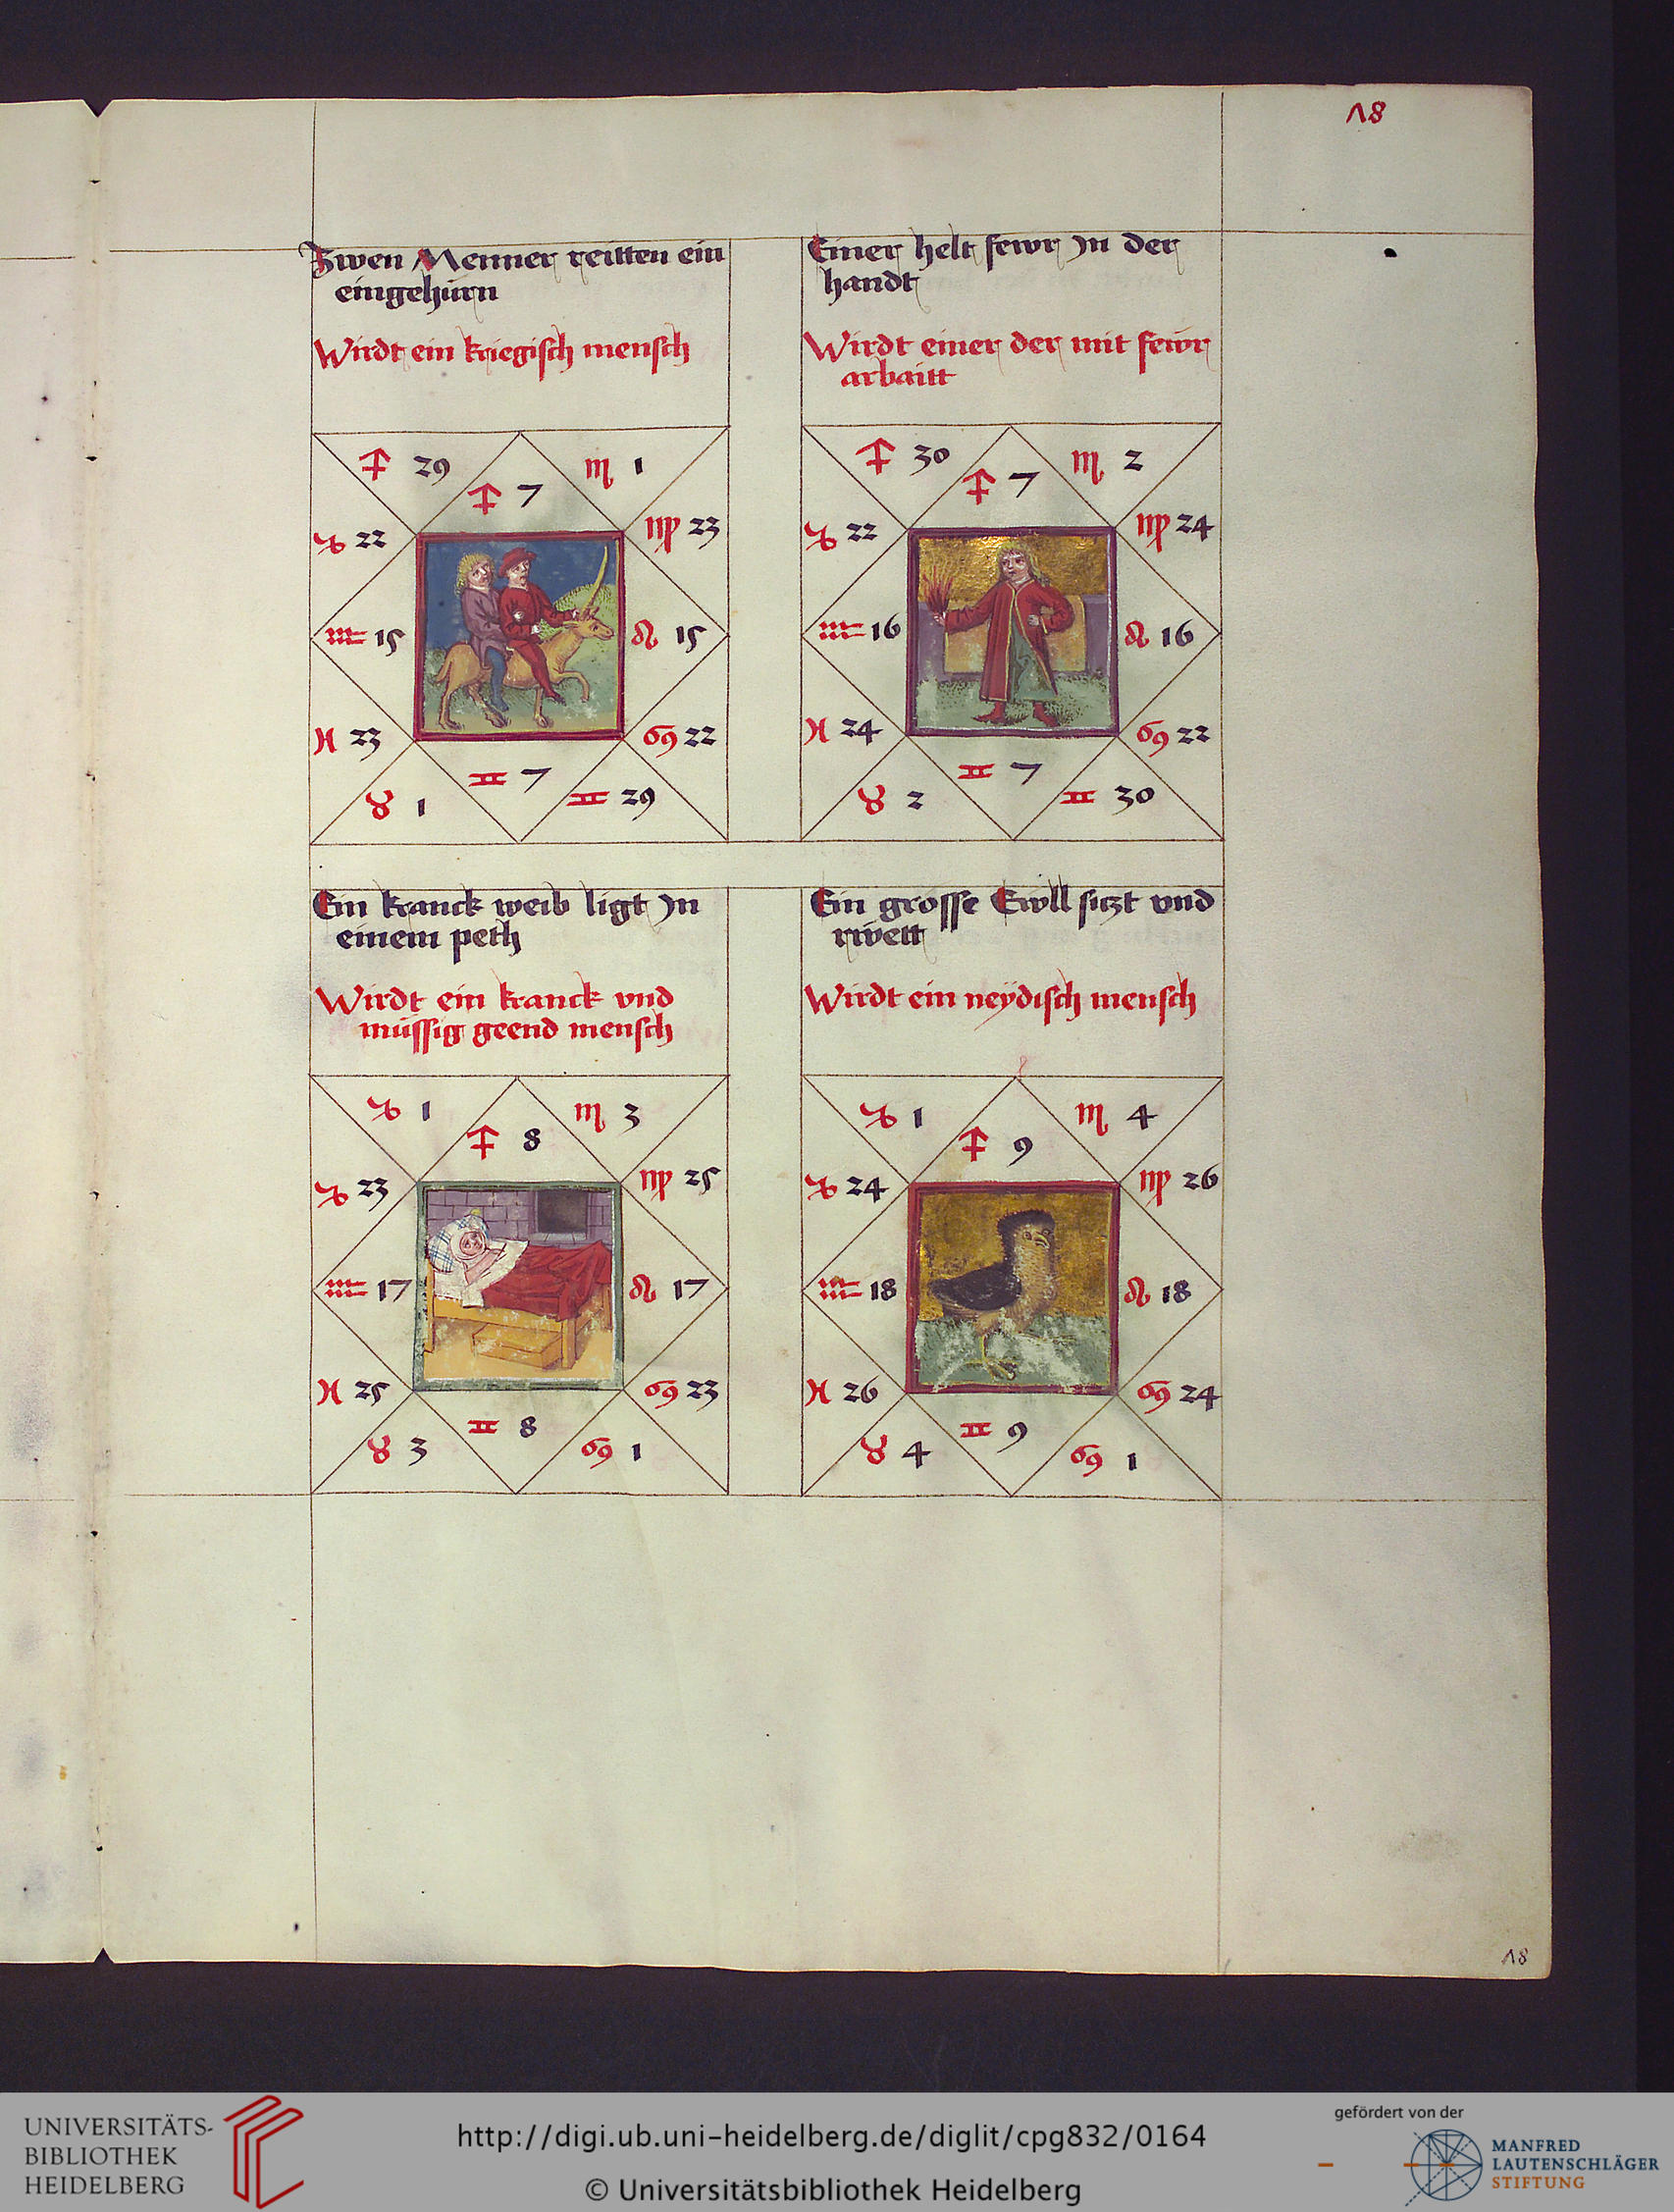 18
Zwen Menner reitten ein
eingehürn
Wirdt ein kriegisch mensch
♐ 29
♐ 7
♏ 1
♑ 22
♍ 23
♒ 15
♌ 15
♓ 23
♋ 22
♉ 1
♊ 7
♊ 29
Einer helt fewr Jn der
handt
Wirdt einer der mit fewr
arbaitt
♐ 30
♐ 7
♏ 2
♑ 22
♍ 24
♒ 16
♌ 16
♓ 24
♋ 22
♉ 2
♊ 7
♊ 30
Ein kranck weib ligt Jn
einem peth
Wirdt ein kranck vnd
müssig geend mensch
♑ 1
♐ 8
♏ 3
♑ 23
♍ 25
♒ 17
♌ 17
♓ 25
♋ 23
♉ 3
♊ 8
♋ 1
Ein grosse Ewll siczt vnd
rwett
Wirdt ein neÿdisch mensch
♑ 1
♐ 9
♏ 4
♑ 24
♍ 26
♒ 18
♌ 18
♓ 26
♋ 24
♉ 4
♊ 9
♋ 1
18
UNIVERSITÄTS-
BIBLIOTHEK
HEIDELBERG
http://digi.ub.uni-heidelberg.de/diglit/cpg832/0164
© Universitätsbibliothek Heidelberg
gefördert von der
MANFRED
LAUTENSCHLÄGER
STIFTUNG